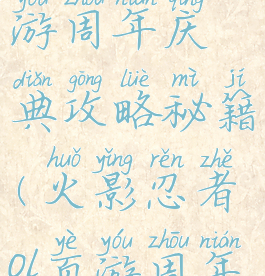 yóu zhōu nián qìng
游周年庆
diǎn gōng lüè mì jí
典攻略秘籍
huǒ yǐng rěn zhě
(火影忍者
yè yóu zhōu nián
OL页游周年